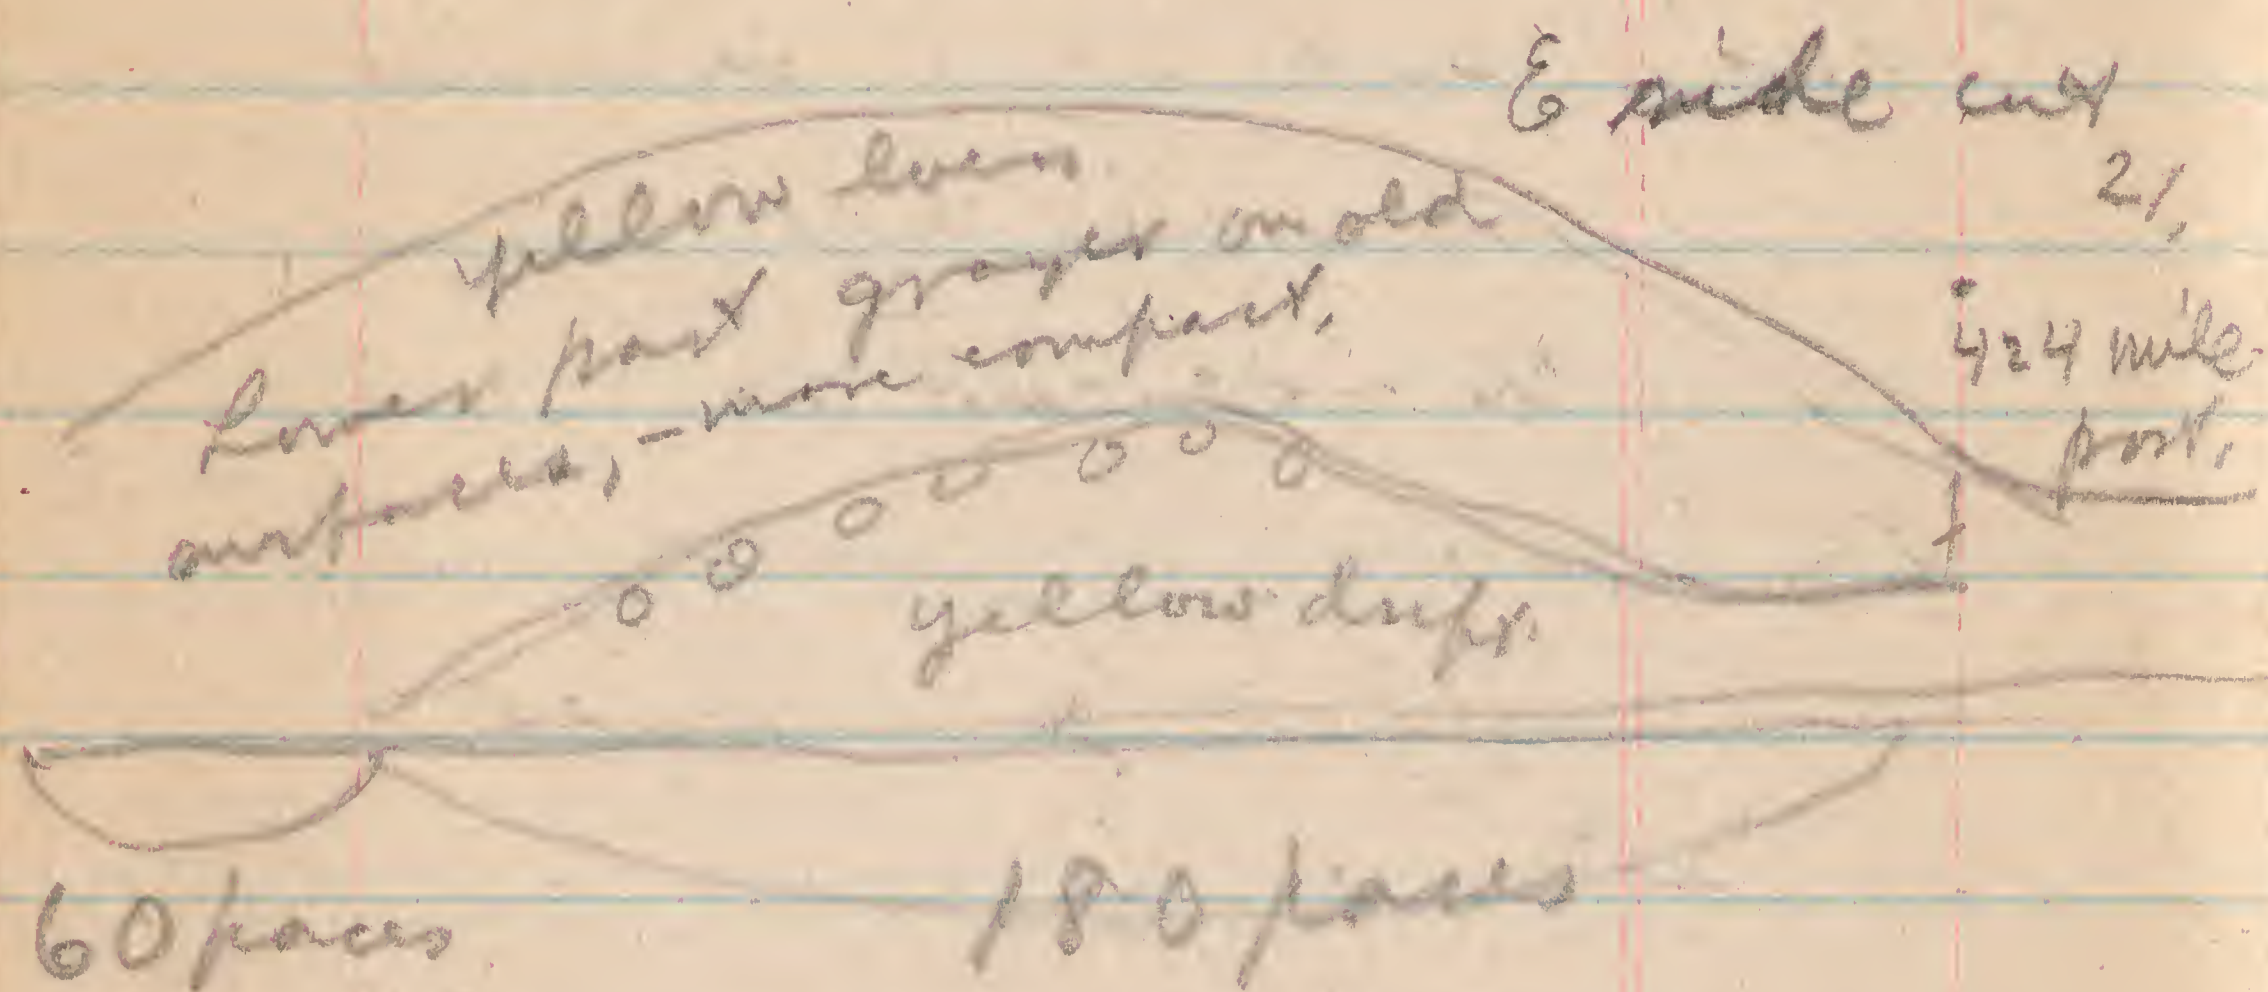 E side cut
21,
yellow loess
Lower part grayer on old
surfaces, - more compact.
424 mile
post,
yellow drift.
60 paces
180 paces